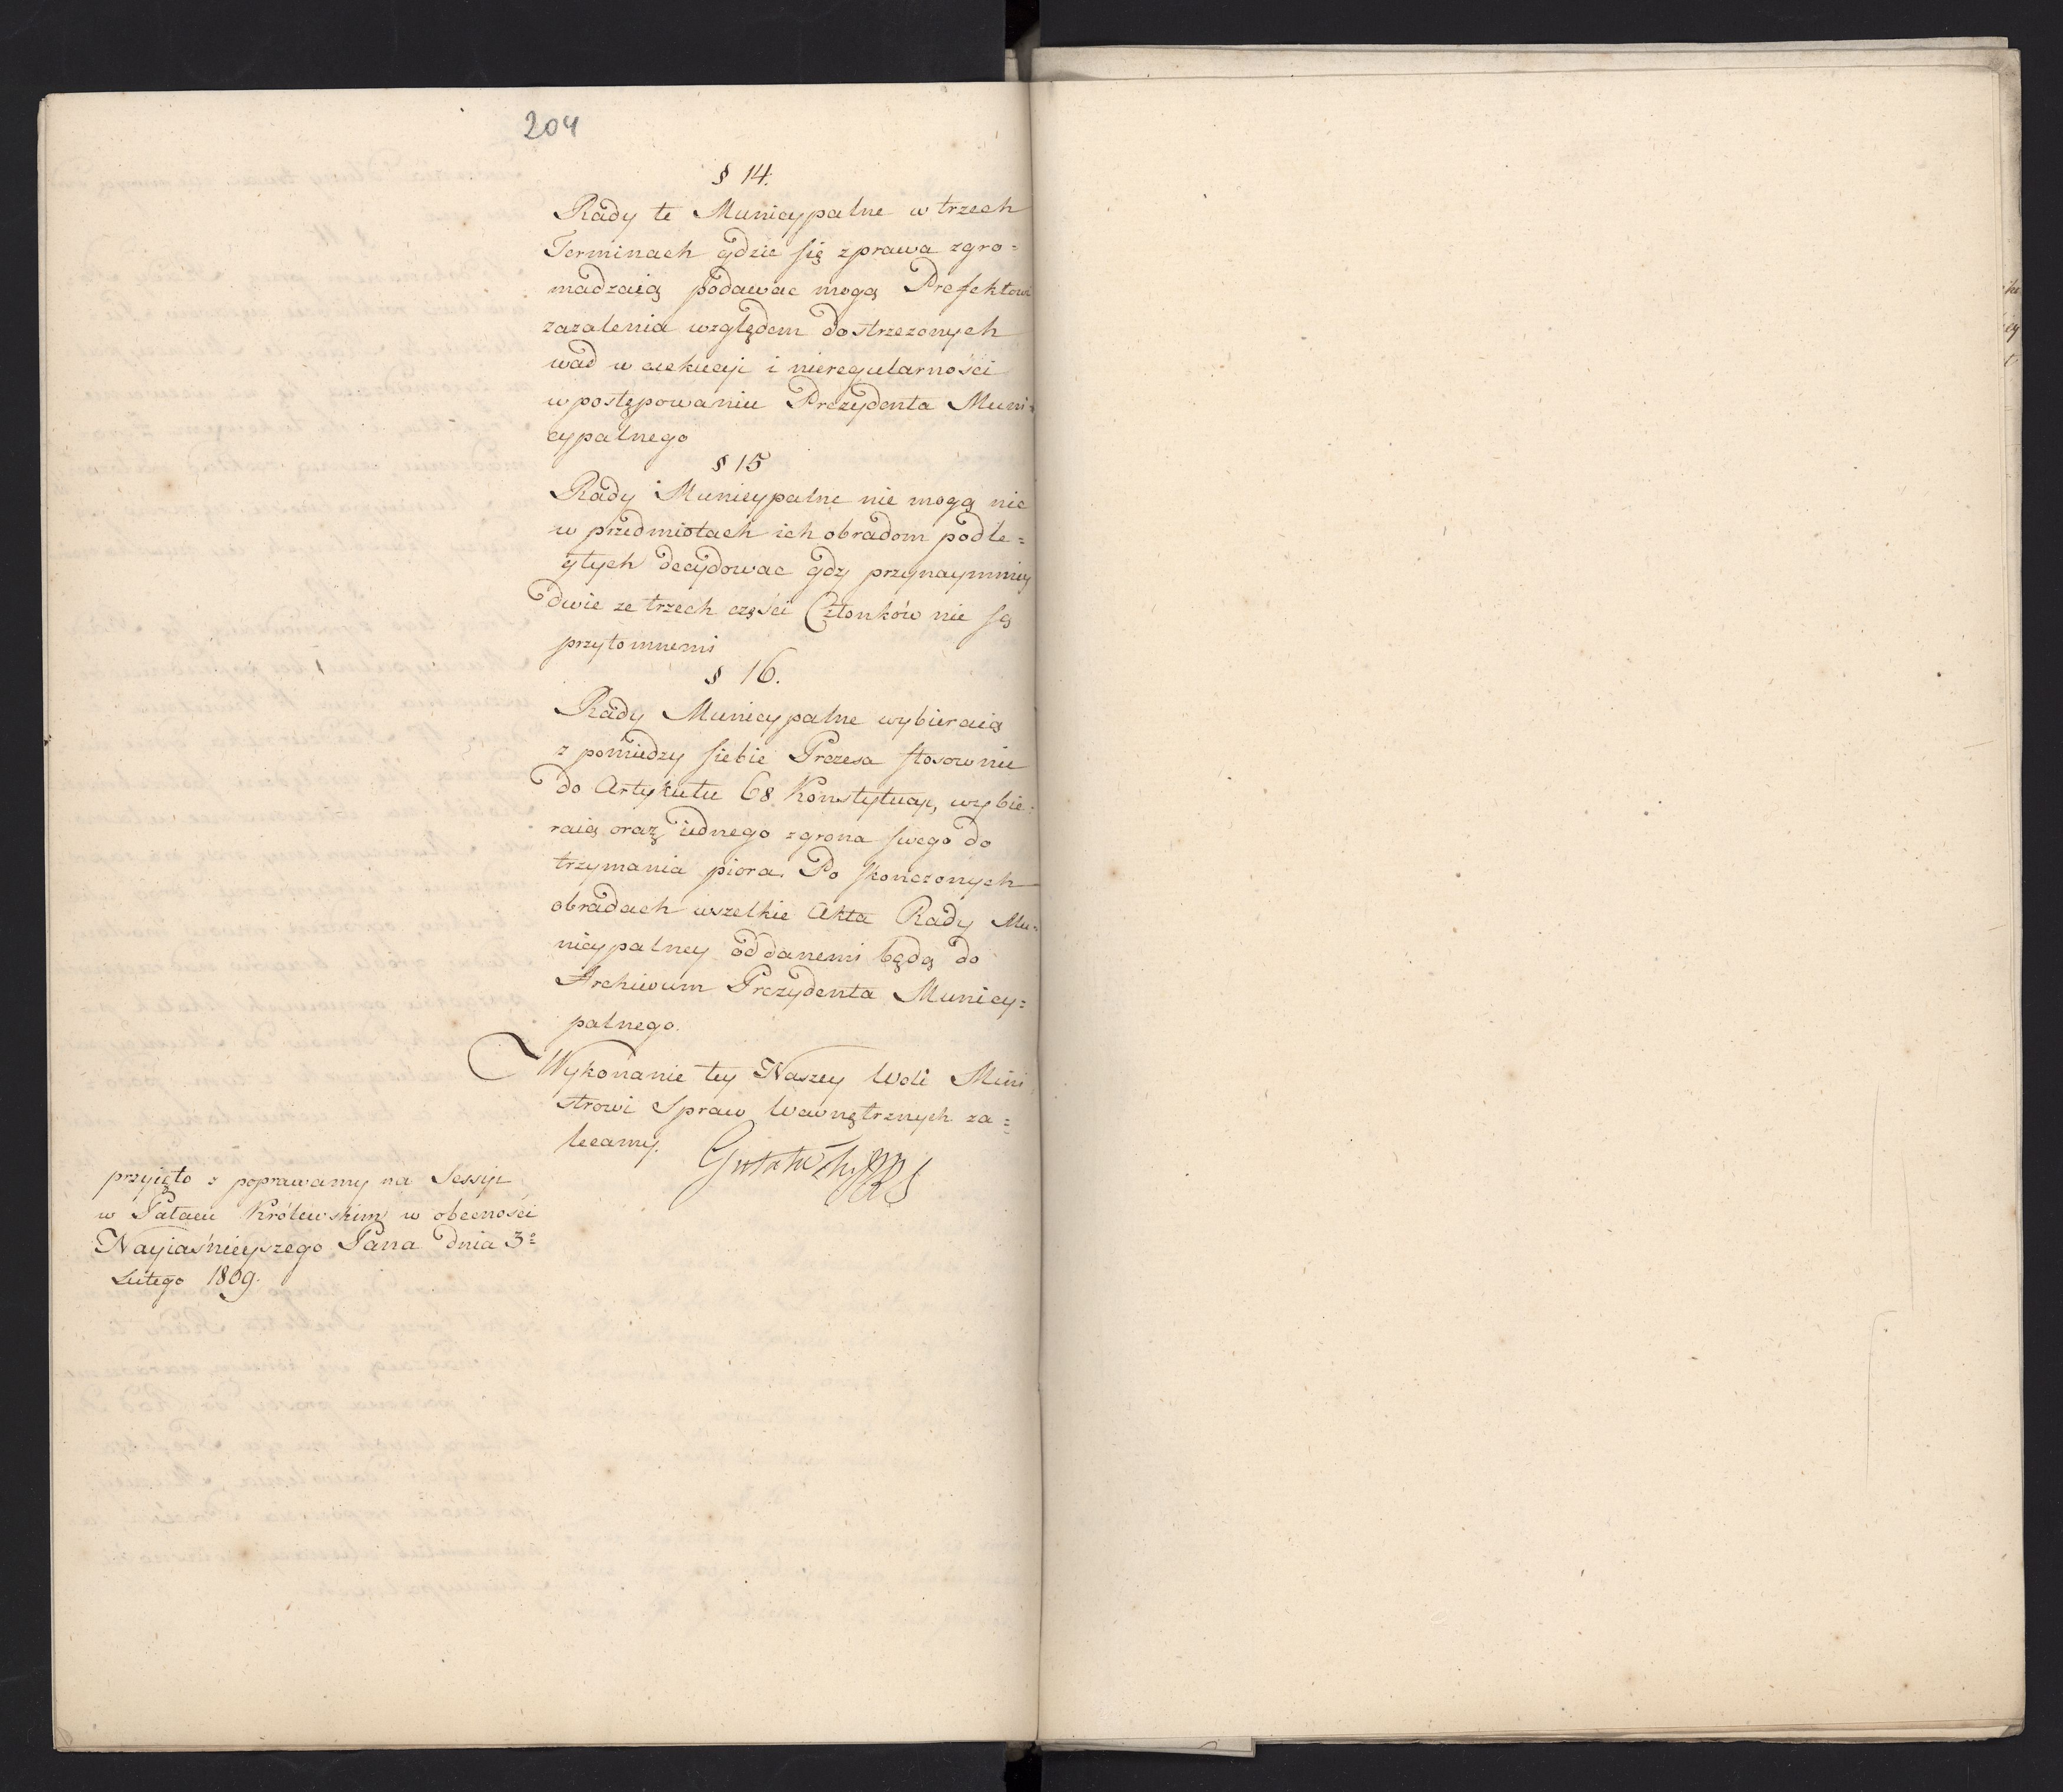 204
§ 14.
Rady te Municypalne w trzech
Terminach gdzie się z prawa zgro=
madzaią podawac mogą Prefektowi
zazalenia względem dostrzezonych
wad w exekucyi i nieregularności
w postępowaniu Prezydenta Muni=
cypalnego
§ 15
Rady Municypalne nie mogą nic
w przedmiotach ich obradom podle=
głych decydowac gdy przynaymniey
dwie ze trzech części Członków nie są
przytomnemi
§ 16.
Rady Municypalne wybieraią
z pomiedzy siebie Prezesa stosownie
do Artykułu 68 Konstytucyi, wybie=
raią oraz iednego z grona swego do
trzymania piora. Po skonczonych
obradach wszelkie Akta Rady Mu=
nicypalney oddanemi będą do
Archiwum Prezydenta Municy=
palnego.
Wykonanie tey Naszey Woli Mini
strowi Spraw Wewnętrznych za=
lecamy.
przyięto z poprawamy na Sessyi
w Pałacu Królewskim w obecności
Nayiaśnieyszego Pana dnia 3º
Lutego 1809.